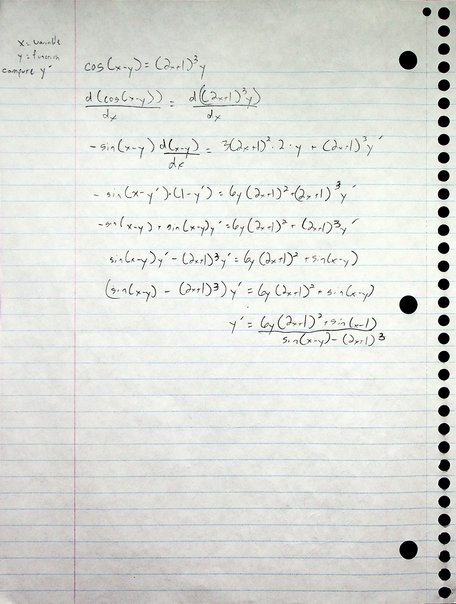 x = variable
y = function
compute y'
cos(x-y) = (2x+1)³y
d(cos(x-y))/dx = d((2x+1)³y)/dx
-sin(x-y) d(x-y)/dx = 3(2x+1)²·2·y + (2x+1)³y'
-sin(x-y')·(1-y') = 6y(2x+1)²+(2x+1)³y'
-sin(x-y) + sin(x-y)y' = 6y(2x+1)² + (2x+1)³y'
sin(x-y)y' - (2x+1)³y' = 6y(2x+1)² + sin(x-y)
(sin(x-y) - (2x+1)³)y' = 6y(2x+1)² + sin(x-y)
y' = 6y(2x+1)² + sin(x-1)/sin(x-y) - (2x+1)³